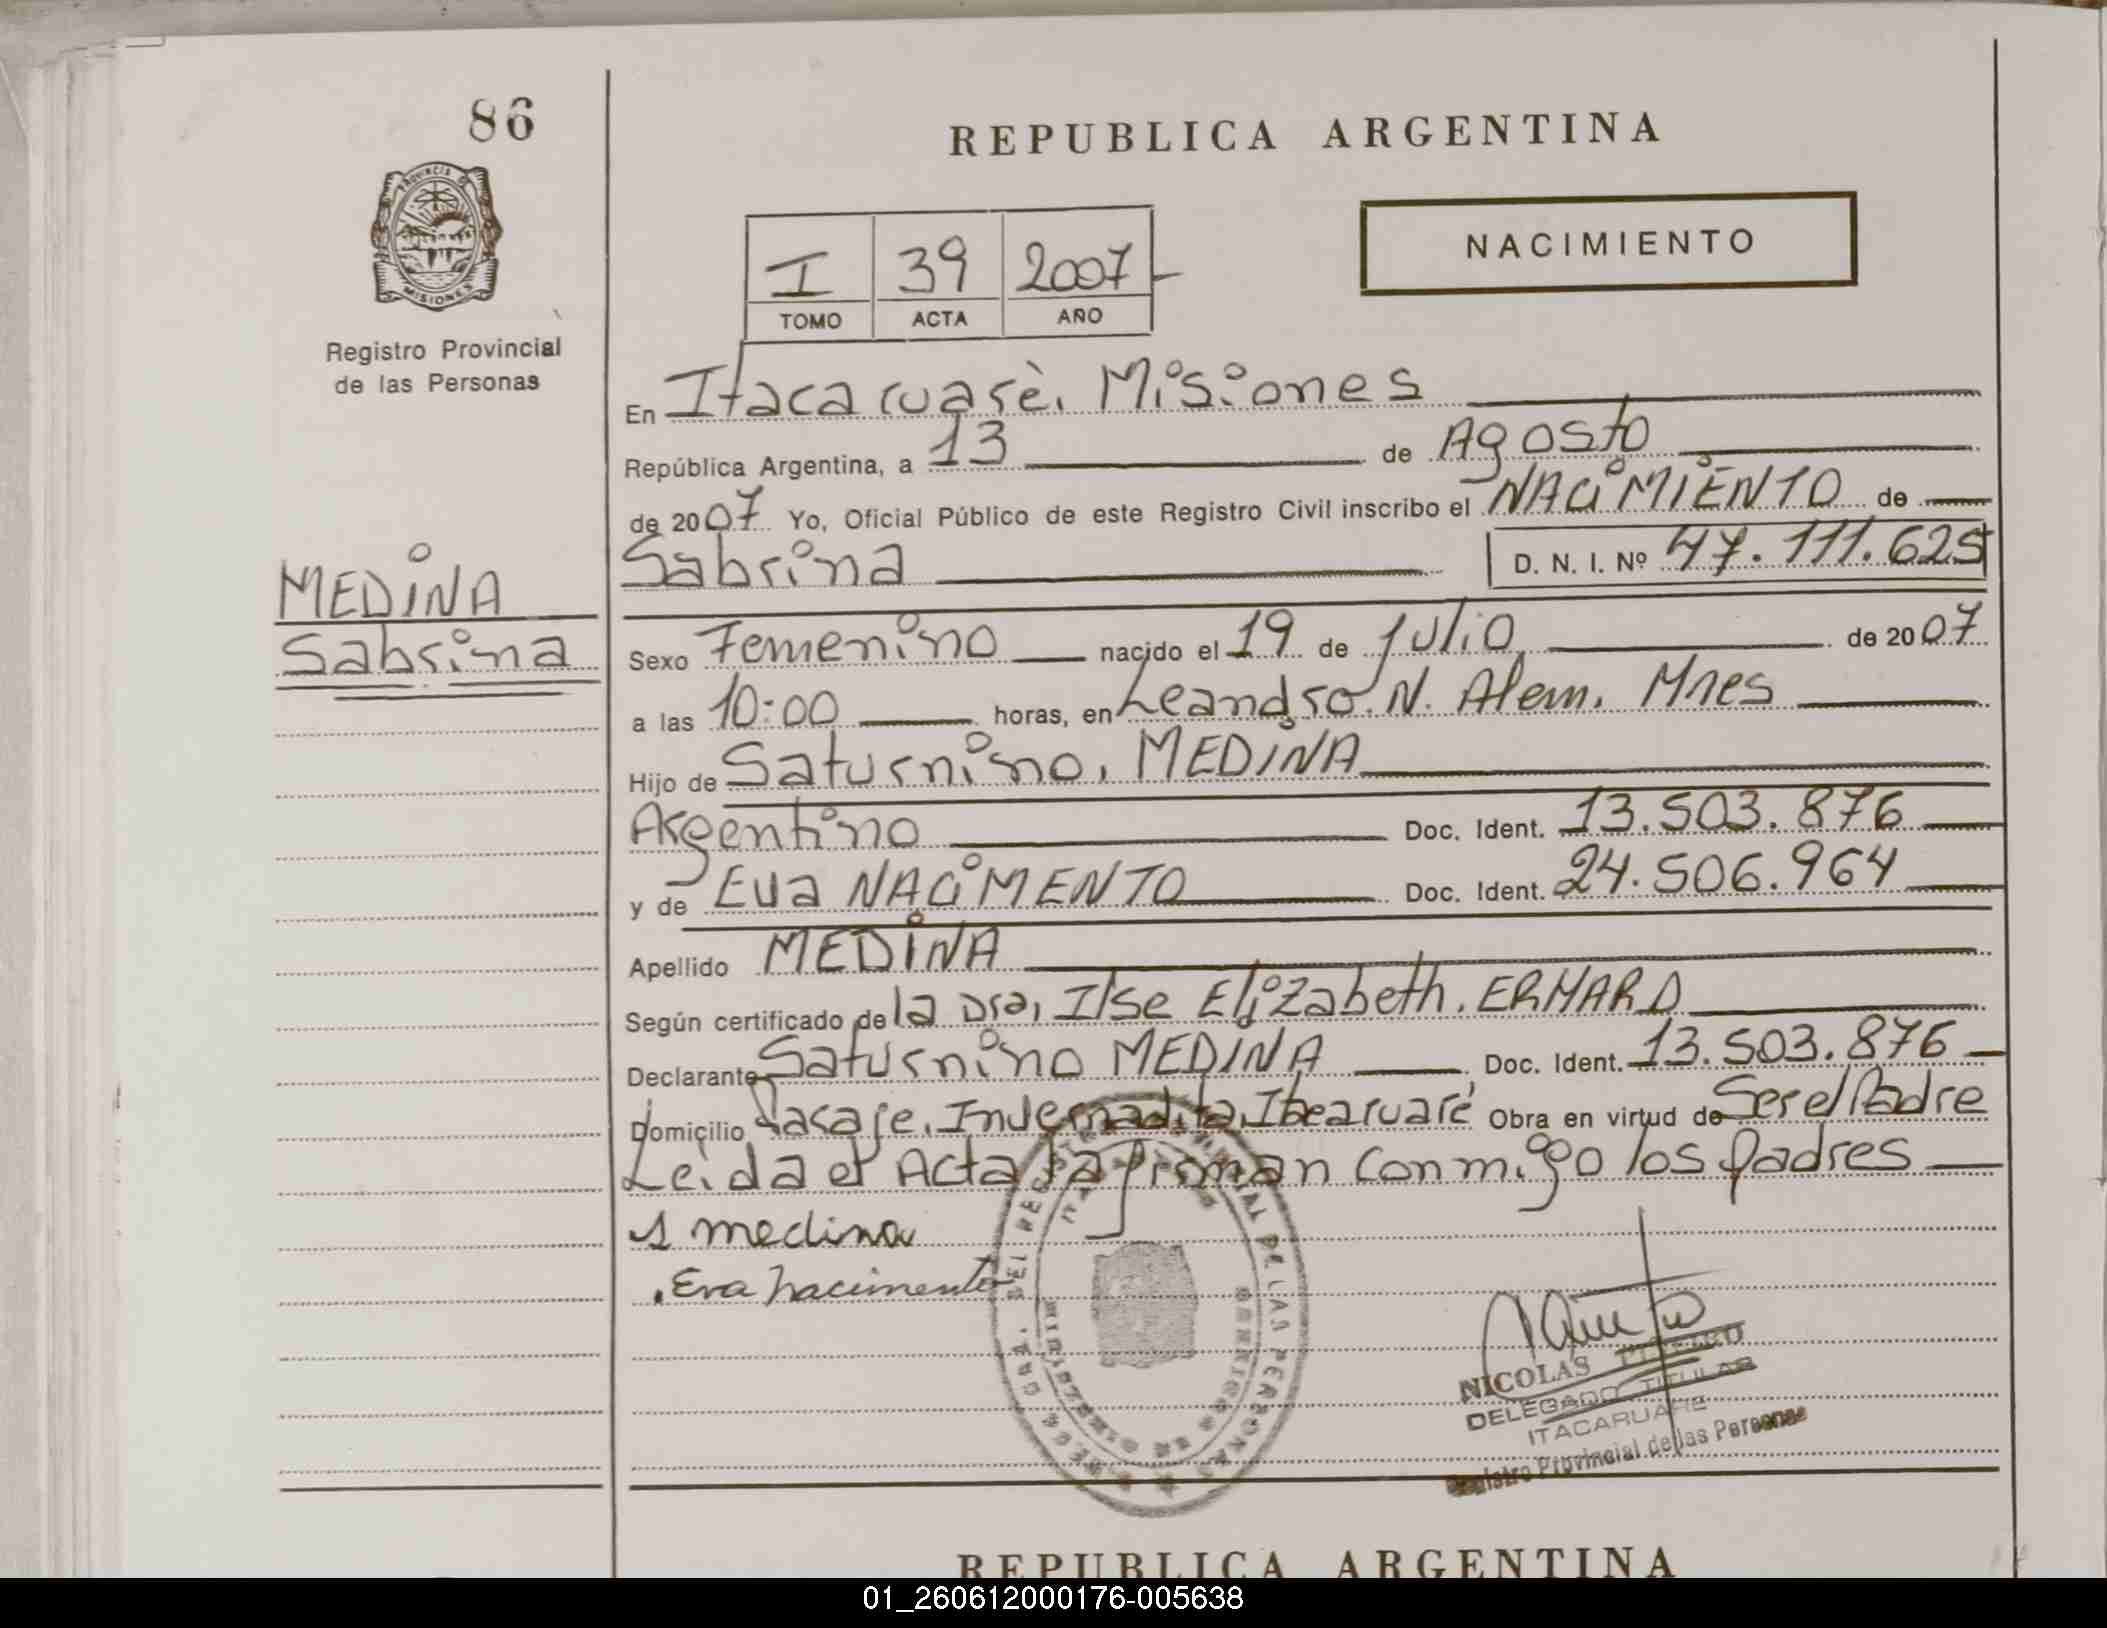 86
PROVINCIA DE
MISIONES
Registro Provincial
de las Personas
MEDINA
Sabrina
REPUBLICA ARGENTINA
I 39 2007
TOMO ACTA AÑO
NACIMIENTO
En Itacaruaré, Misiones
República Argentina, a 13 de Agosto
de 2007 Yo, Oficial Público de este Registro Civil inscribo el NACIMIENTO de
Sabrina D. N. I. Nº 47.111.625
Sexo Femenino nacido el 19 de julio de 2007
a las 10:00 horas, en Leandro. N. Alem. Mnes
Hijo de Saturnino, MEDINA
Argentino Doc. Ident. 13.503.876
y de Eva NACIMENTO Doc. Ident. 24.506.964
Apellido MEDINA
Según certificado de la Dra, Ilse Elizabeth. ERHARD
Declarante Saturnino MEDINA Doc. Ident. 13.503.876
Domicilio Pasaje. Invernadita, Itacaruaré Obra en virtud de Ser el Padre
Leida el Acta la firman conmigo los padres
S medina
Eva nacimento
NICOLAS
DELEGADO TITULAR
ITACARUARE
Registro Provincial de las Personas
REPUBLICA ARGENTINA
01_260612000176-005638